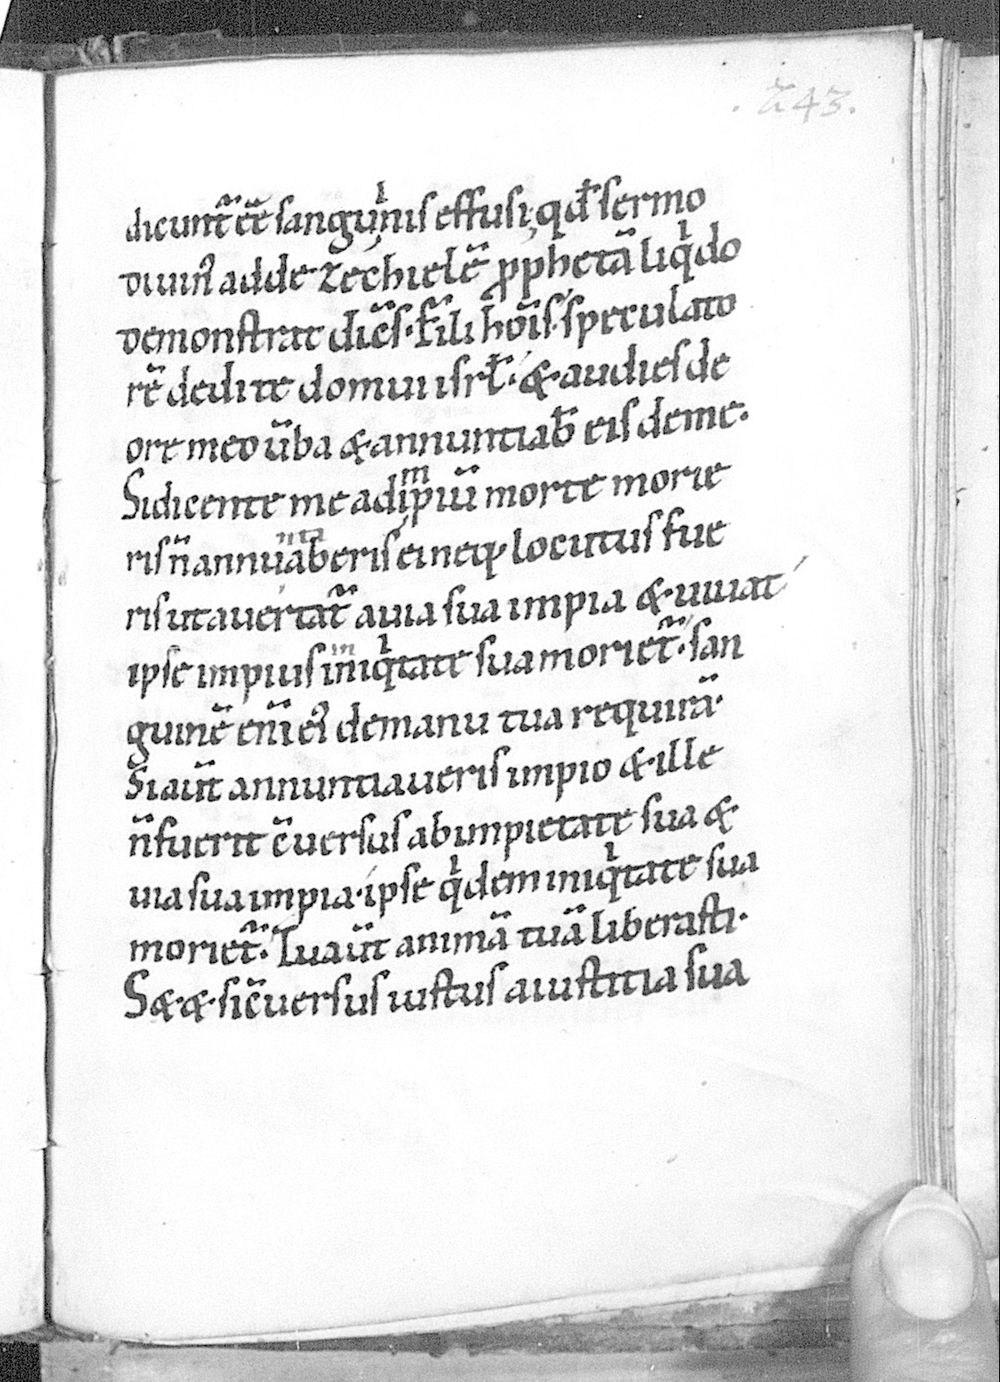 .243.
dicunt̃ eẽ sanguͥnis effusi; qd̃ sermo
diuin᷒ ad dezechielẽ ꝓphetã liqͥdo
demonstrat dicẽs. fili hoĩs. speculato
rẽ dedi te domui isrł. & audies de
ore meo ũba & annuntiab̃ eis de me.
Si dicente me ad imp̃iũ morte morie
ris ñ annuntiaberis ei neq; locutus fue
ris ut auertat̃ a uia sua impia & uiuat
ipse impius in iniqͥtate sua moriet̃. san
guinẽ enĩ ei᷒ de manu tua requirã.
Si aut̃ annuntiaueris impio & ille
ñ fuerit c̃uersus ab impietate sua &
uia sua impia. ipse qͥdem iniqͥtate sua
moriet̃. Tu aut̃ animã tuã liberasti.
S& &. si c̃uersus iustus a iustitia sua